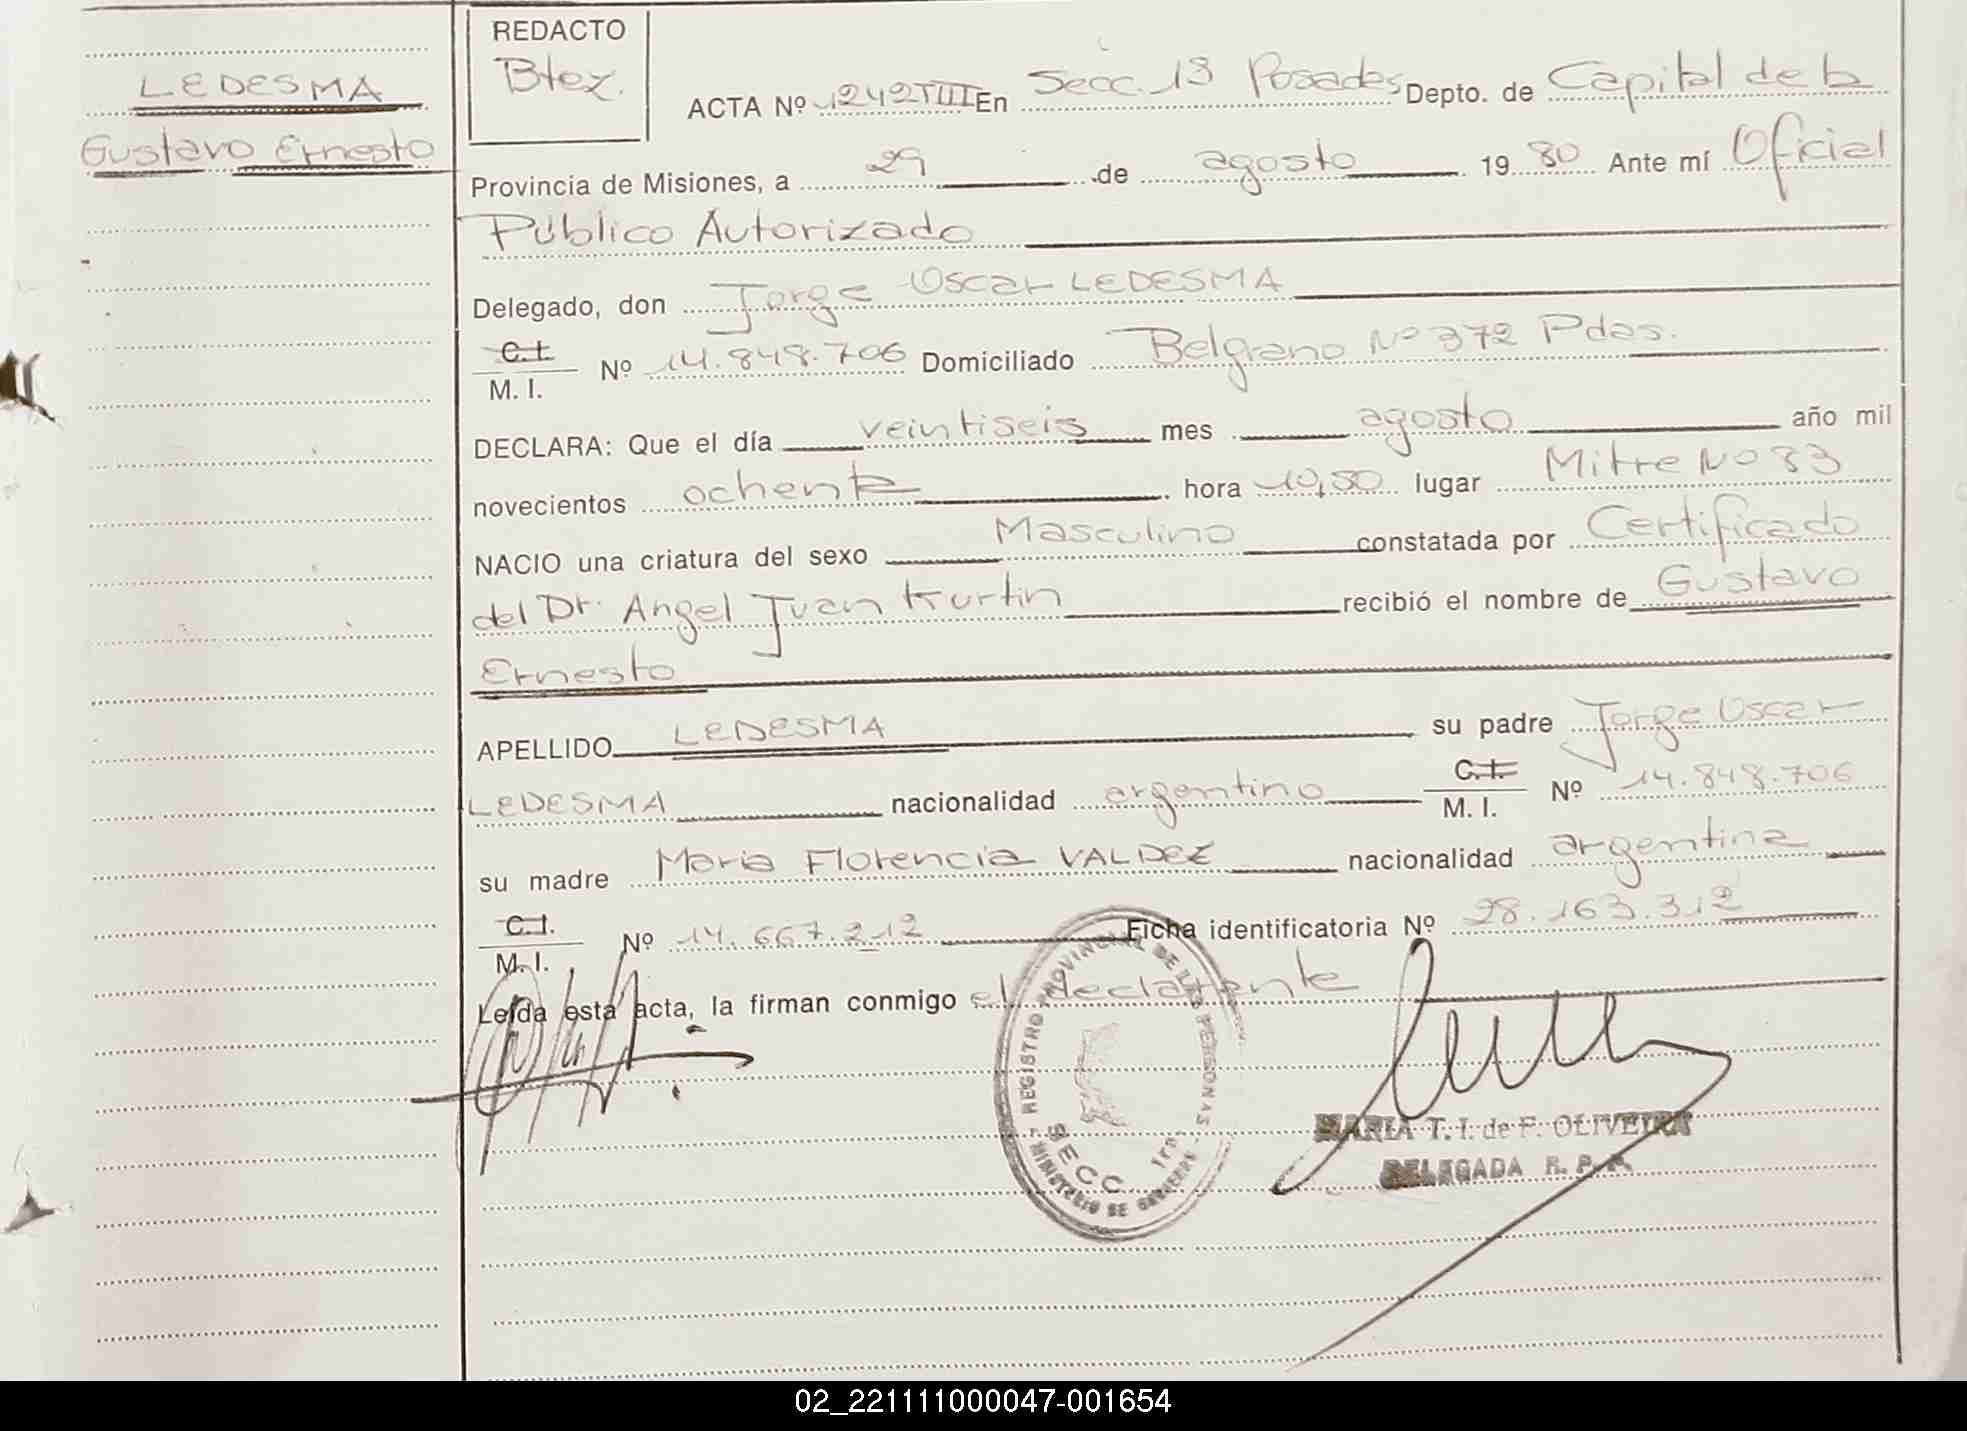 LEDESMA
Gustavo Ernesto
REDACTO
Btez.
ACTA Nº 1242TIII En Secc. 1ª Posadas Depto. de Capital de la
Provincia de Misiones, a 29 de agosto 19 80 Ante mí Oficial
Público Autorizado
Delegado, don Jorge Oscar LEDESMA
C.I.
M. I. Nº 14.848.706 Domiciliado Belgrano Nº 372 Pdas.
DECLARA: Que el día veintiseis mes agosto año mil
novecientos ochenta hora 10,50 lugar Mitre Nº 83
NACIO una criatura del sexo Masculino constatada por Certificado
del Dr. Angel Juan Kurtin recibió el nombre de Gustavo
Ernesto
APELLIDO LEDESMA su padre Jorge Oscar
LEDESMA nacionalidad argentino C.I. M. I. Nº 14.848.706
su madre Maria Florencia VALDEZ nacionalidad argentina
C.I.
M. I. Nº 14.667.212 Ficha identificatoria Nº 28.163.312
Leída esta acta, la firman conmigo el declarante
REGISTRO PROVINCIAL DE LAS PERSONAS
SECC 1ra
MINISTERIO DE GOBIERNO
MARIA T. I. de F. OLIVEIRA
DELEGADA R. P. P.
02_221111000047-001654